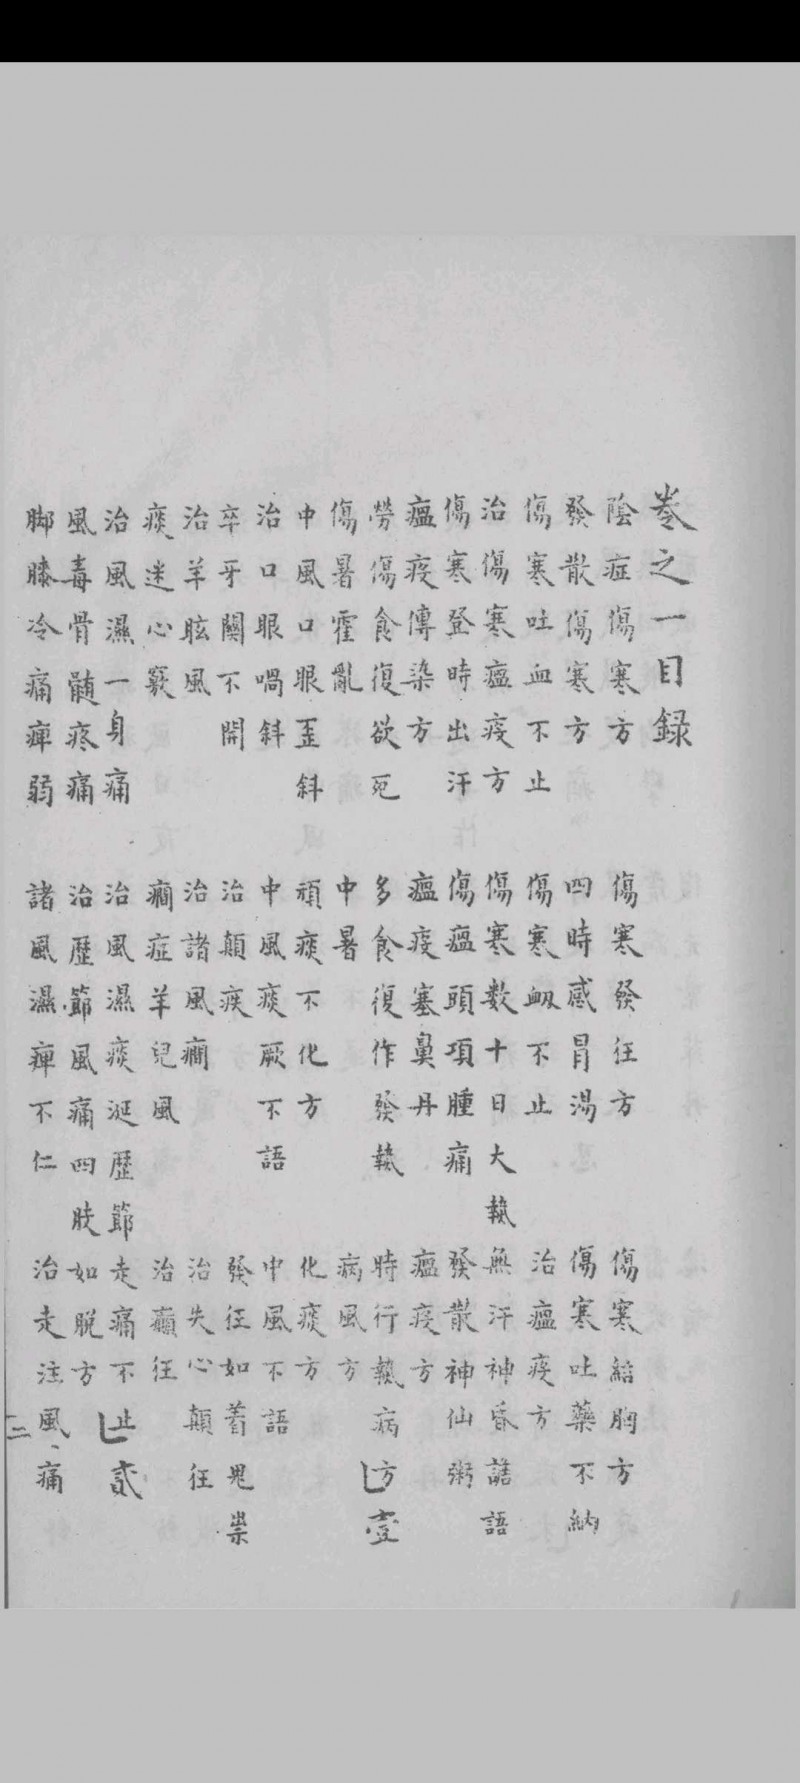 卷之一目録
陰症傷寒方　傷寒發狂方　傷寒結胸方
發散傷寒方　四時感冒湯　傷寒吐藥不納
傷寒吐血不止　傷寒衂不止　治瘟疫方
治傷寒瘟疫方　傷寒数十日大熱　無汗神昏譫語
傷寒登時出汗　傷瘟頭項腫痛　發散神仙粥
瘟疫傳染方　瘟疫塞鼻丹　瘟疫方
勞傷食復欲死　多食復作發熱　時行熱病方　壹
傷暑霍亂　中暑　病風方
中風口眼歪斜　頑痰不化方　化痰方
治口眼喎斜　中風痰厥不語　中風不語
卒牙關不開　治顛疾　發狂如着鬼祟
治羊眩風　治諸風癇　治失心顛狂
痰迷心竅　癇症羊兒風　治癲狂
治風濕一身痛　治風濕痰涎歷節　走痛不止　貳
風毒骨髄疼痛　治歷節風痛四肢　如脱方
脚膝冷痛痺弱　諸風濕痺不仁　治走注風痛
二